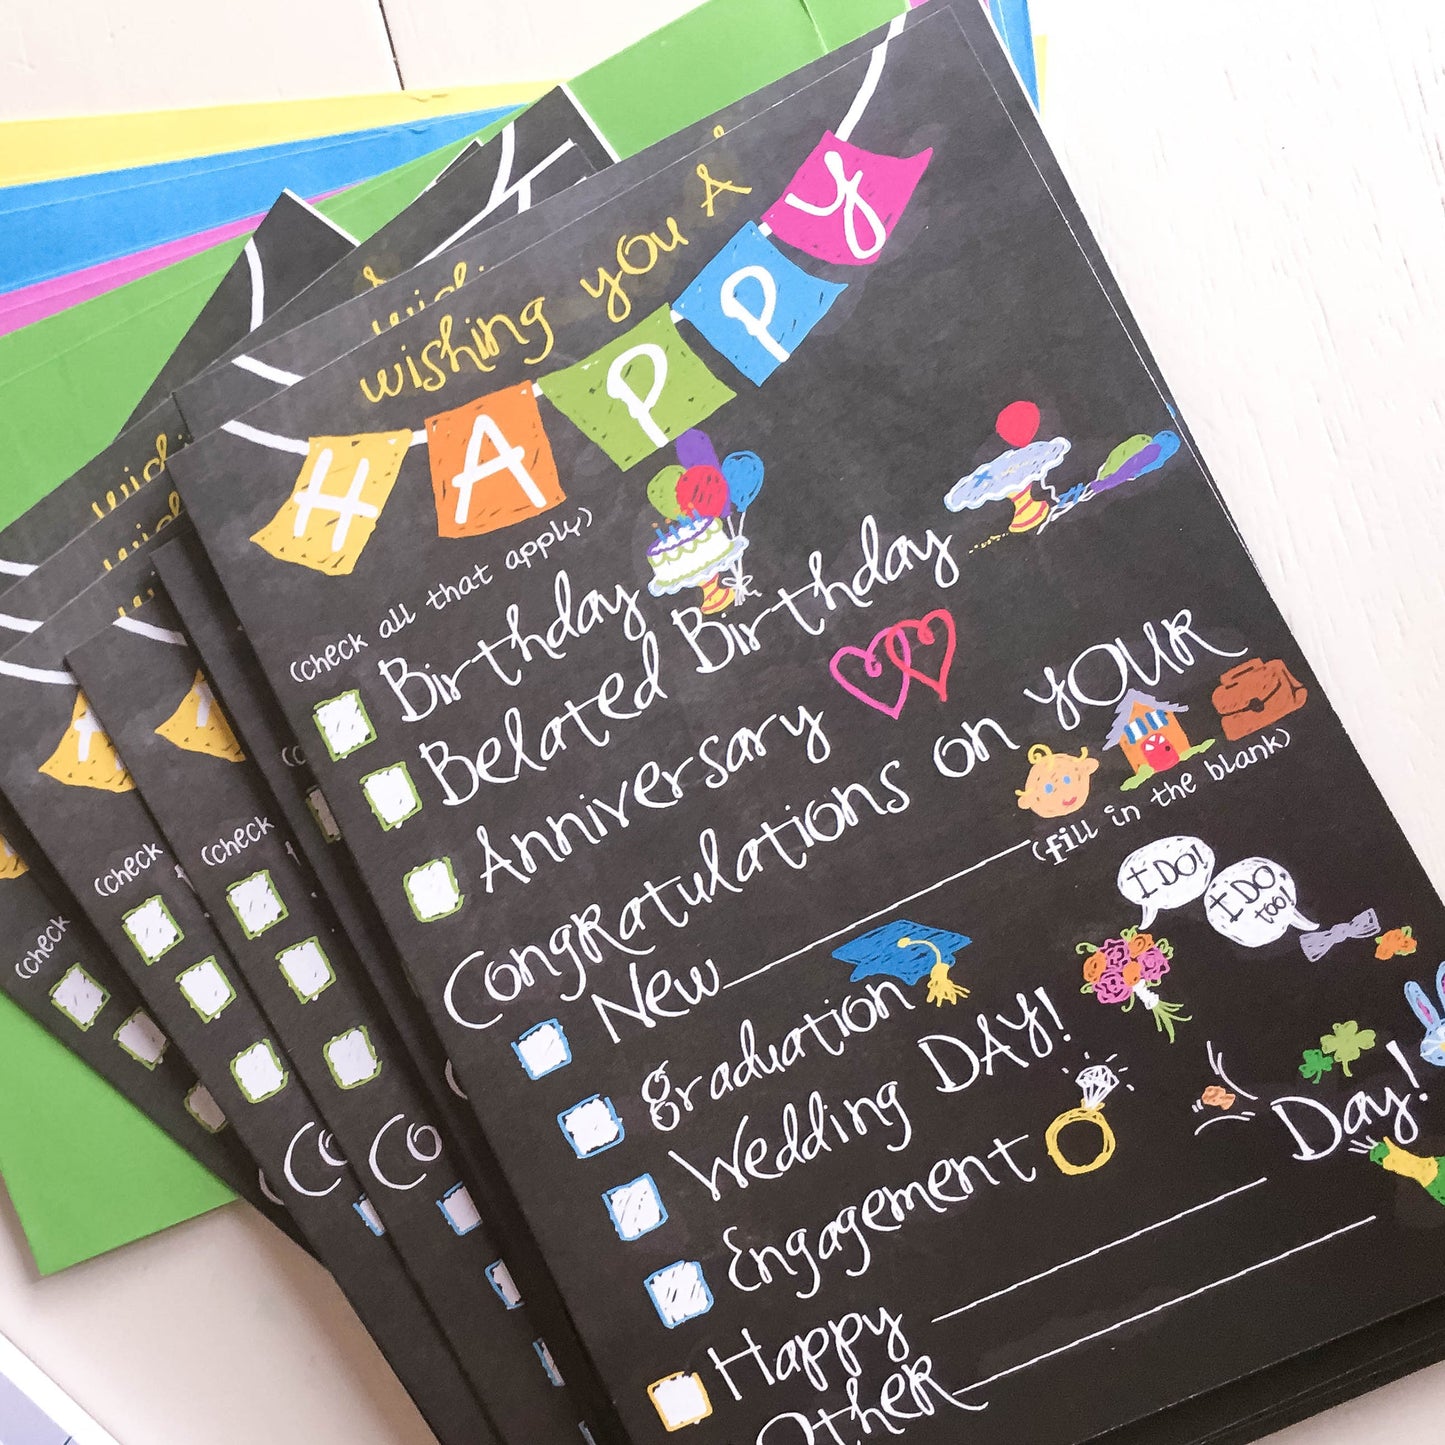 wishing you A
HAPPY
(check all that apply)
Birthday
Belated Birthday
Anniversary
Congratulations on YOUR
New
(fill in the blank)
graduation
Wedding DAY!
I DO!
I DO too!
Engagement
Happy Day!
Other
(check
(check
(check